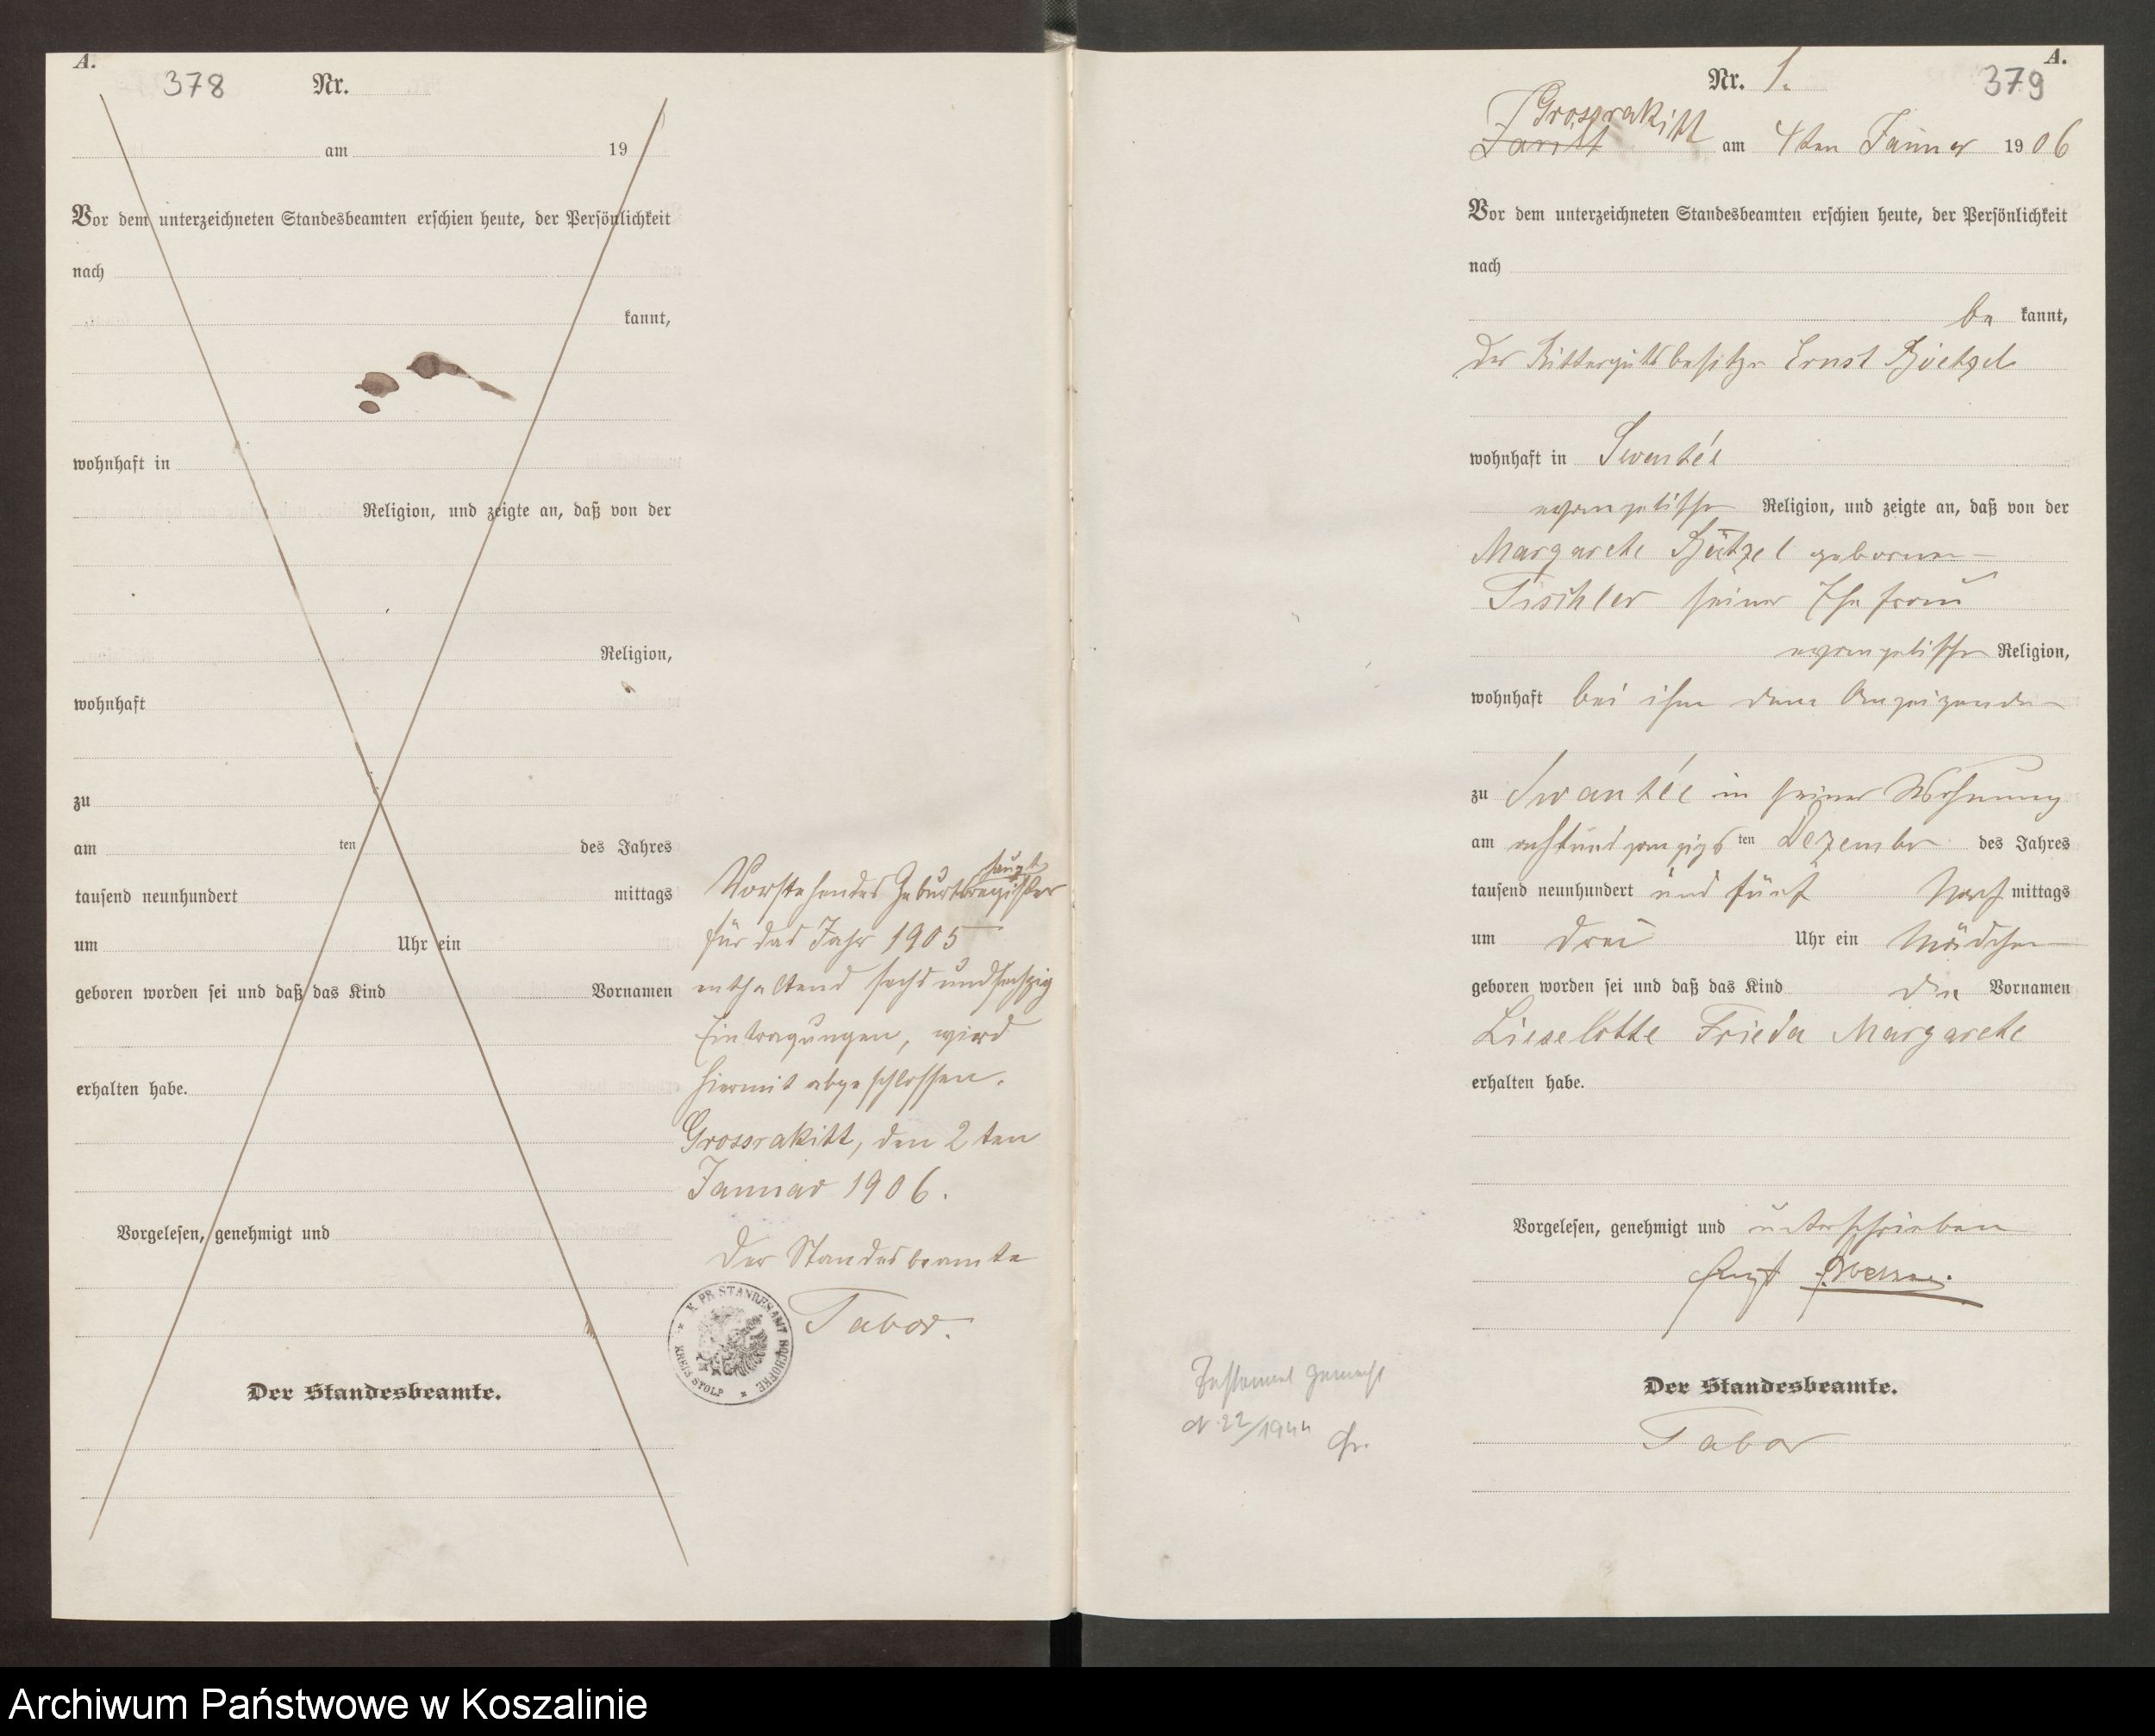 A.
378 Nr.
am 19
Vor dem unterzeichneten Standesbeamten erschien heute, der Persönlichkeit
nach
kannt,
wohnhaft in
Religion, und zeigte an, daß von der
Religion,
wohnhaft
zu
am ten des Jahres
tausend neunhundert mittags
um Uhr ein
geboren worden sei und daß das Kind Vornamen
erhalten habe.
Vorgelesen, genehmigt und
Der Standesbeamte.
haupt
Vorstehendes Geburtsregister
für das Jahr 1905
enthaltend sechsundsechzig
Eintragungen, wird
hiermit abgeschlossen.
Grossrakitt, den 2ten
Januar 1906.
Der Standesbeamte
Tabor.
K. PR. STANDESAMT
KREIS STOLP
A.
Nr. 1. 379
Grossrakitt
am 4ten Januar 1906
Vor dem unterzeichneten Standesbeamten erschien heute, der Persönlichkeit
nach
be kannt,
der Rittergutsbesitzer Ernst
wohnhaft in Swantée
evangelischer Religion, und zeigte an, daß von der
Margarete geborenen
Tischler seiner Ehefrau
evangelischer Religion,
wohnhaft bei ihm dem Anzeigenden
zu Swantée in seiner Wohnung
am achtundzwanzigsten Dezember des Jahres
tausend neunhundert und fünf Nachmittags
um drei Uhr ein Mädchen
geboren worden sei und daß das Kind die Vornamen
Lieselotte Frieda Margarete
erhalten habe.
Vorgelesen, genehmigt und unterschrieben
Der Standesbeamte.
Tabor
Testament gemacht
22/1944
Archiwum Państwowe w Koszalinie